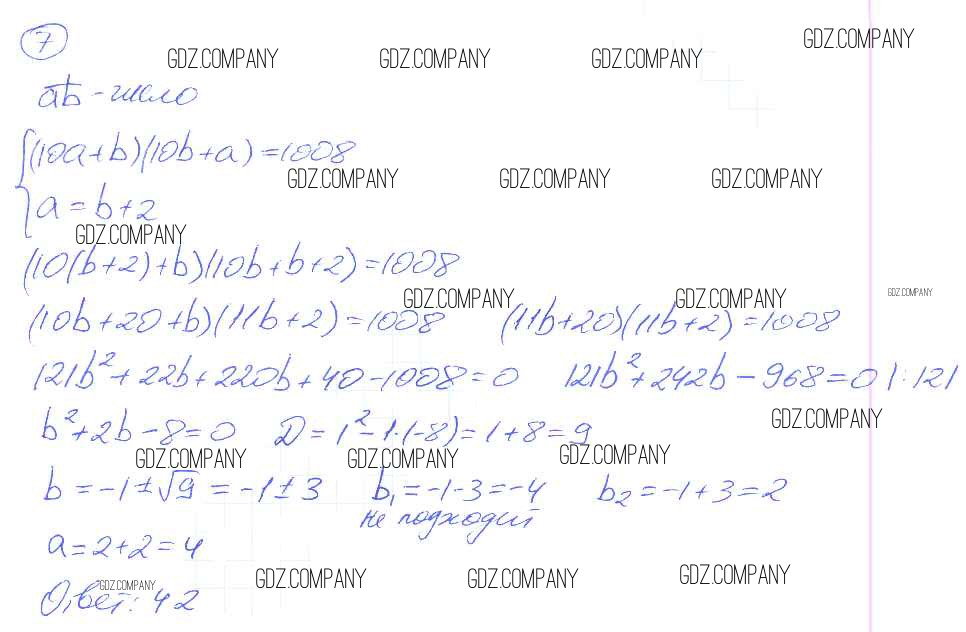 7
GDZ.COMPANY GDZ.COMPANY GDZ.COMPANY GDZ.COMPANY
ab - число
(10a+b)(10b+a)=1008
GDZ.COMPANY GDZ.COMPANY GDZ.COMPANY
a=b+2
GDZ.COMPANY
(10(b+2)+b)(10b+b+2)=1008
GDZ.COMPANY GDZ.COMPANY GDZ.COMPANY
(10b+20+b)(11b+2)=1008 (11b+20)(11b+2)=1008
121b²+22b+220b+40-1008=0 121b²+242b-968=0 |:121
GDZ.COMPANY
b²+2b-8=0 D=1²-1·(-8)=1+8=9
GDZ.COMPANY GDZ.COMPANY GDZ.COMPANY
b=-1±√9=-1±3 b₁=-1-3=-4 b₂=-1+3=2
не подходит
a=2+2=4
GDZ.COMPANY GDZ.COMPANY GDZ.COMPANY GDZ.COMPANY
Ответ: 42